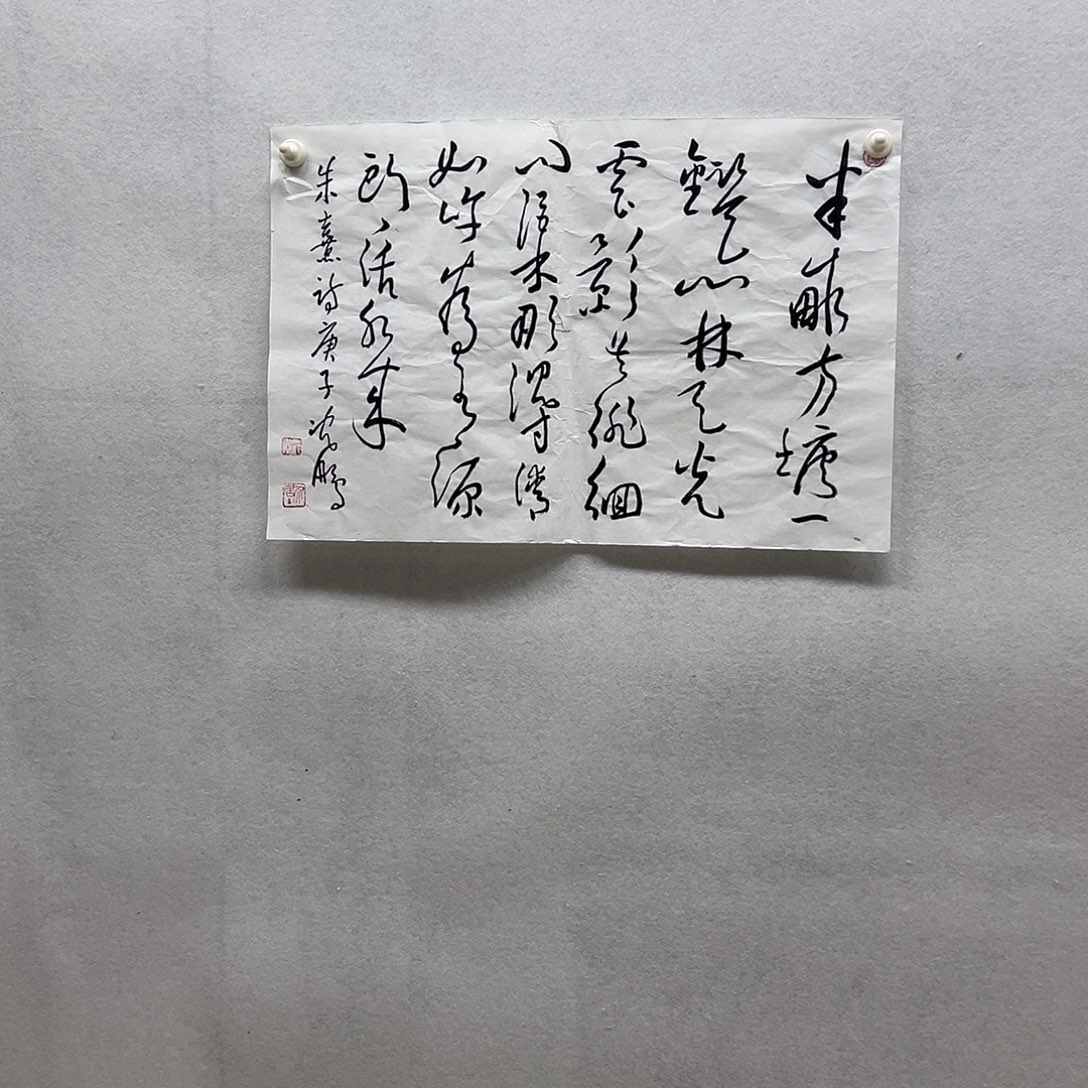 半畝方塘一
鑑開天光
雲影共徘徊
问渠那得清
如許為有源
頭活水来
朱熹詩庚子沈鵬